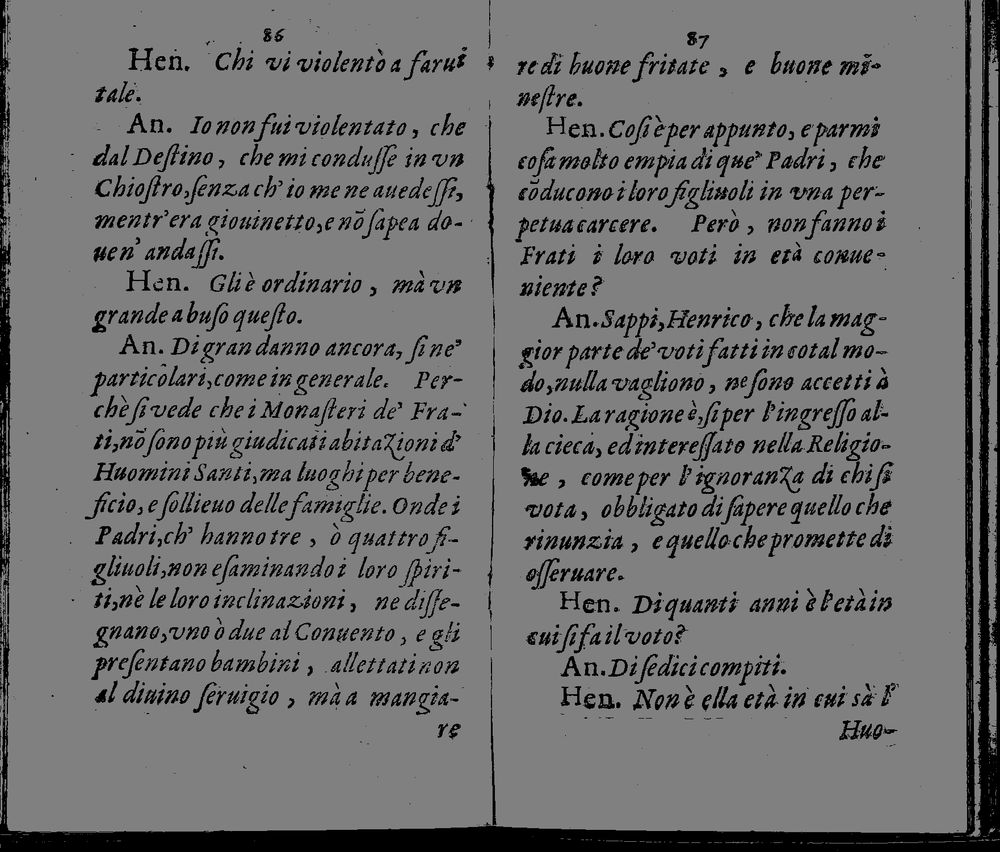 86
Hen. Chi vi violentò a farui
tale.
An. Io non fui violentato, che
dal Deſtino, che mi conduſſe in vn
Chioſtro, ſenza ch' io me ne auedeſſi,
mentr' era giouinetto, e nõ ſapea do-
uen' andaſſi.
Hen. Gli è ordinario, mà vn
grande abuſo queſto.
An. Di gran danno ancora, ſi ne'
particolari, come in generale. Per-
chè ſi vede che i Monaſteri de' Fra-
ti, nõ ſono più giudicati abitazioni d'
Huomini Santi, ma luoghi per bene-
ficio, e ſollieuo delle famiglie. Onde i
Padri, ch' hanno tre, ò quattro fi-
gliuoli, non eſaminando i loro ſpiri-
ti, nè le loro inclinazioni, ne diſſe-
gnano, vno ò due al Conuento, e gli
preſentano bambini, allettati non
al diuino ſeruigio, mà a mangia-
re
87
re di buone fritate, e buone mi-
neſtre.
Hen. Coſi è per appunto, e parmi
coſa molto empia di que' Padri, che
cõducono i loro figliuoli in vna per-
petua carcere. Però, non fanno i
Frati i loro voti in età conue-
niente?
An. Sappi, Henrico, che la mag-
gior parte de' voti fatti in cotal mo-
do, nulla vagliono, ne ſono accetti à
Dio. La ragione è, ſi per l'ingreſſo al-
la cieca, ed intereſſato nella Religio-
ne, come per l'ignoranza di chi ſi
vota, obbligato di ſapere quello che
rinunzia, e quello che promette di
oſſeruare.
Hen. Di quanti anni è l'età in
cui ſi fa il voto?
An. Di ſedici compiti.
Hen. Non è ella età in cui sà l'
Huo-